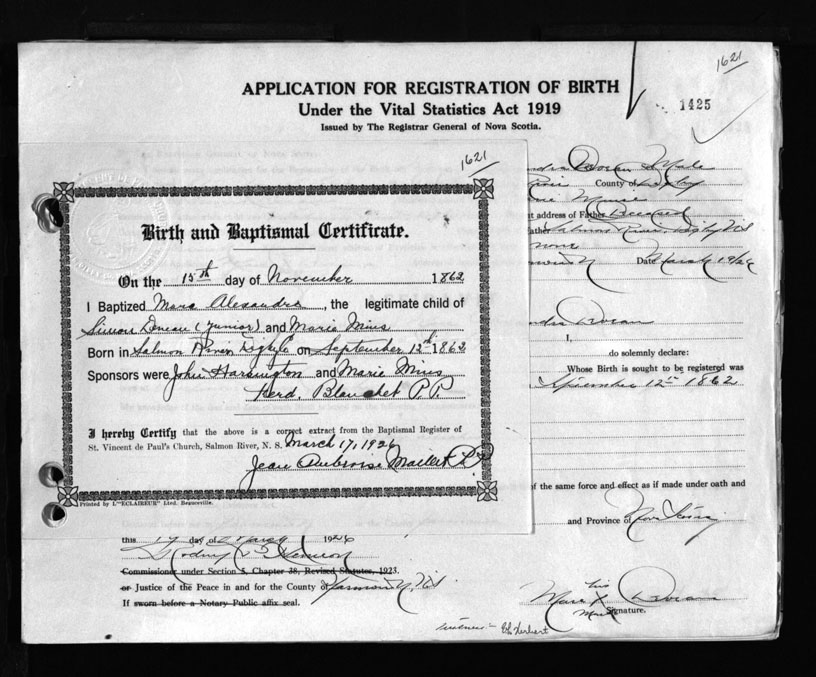 1621
APPLICATION FOR REGISTRATION OF BIRTH
Under the Vital Statistics Act 1919
Issued by The Registrar General of Nova Scotia.
1425
1621
Birth and Baptismal Certificate.
On the 15th day of November 1862
I Baptized Marc Alexandre, the legitimate child of
Simon (Junior) and Marie Mius
Born in Salmon River Digby on September 12th 1862
Sponsors were John Harrington and Marie Mius
Ferd. Blanchet P.P.
I hereby Certify that the above is a correct extract from the Baptismal Register of
St. Vincent de Paul's Church, Salmon River, N. S. March 17, 1926
Jean Ambroise
Printed by L'"ECLAIREUR" Ltd. Beauceville.
Doran Male
County of Digby
address of Father Deceased
Salmon River, Digby NS
Date March 19/26
Doran
I,
do solemnly declare:
Whose Birth is sought to be registered was
September 12th 1862
of the same force and effect as if made under oath and
and Province of Nova Scotia
this 17 day of March 1926
Commissioner under Section 5, Chapter 38, Revised Statutes, 1923.
or Justice of the Peace in and for the County of Yarmouth, NS
If sworn before a Notary Public affix seal.
his
Marc X Doran
Mark
Signature.
witness